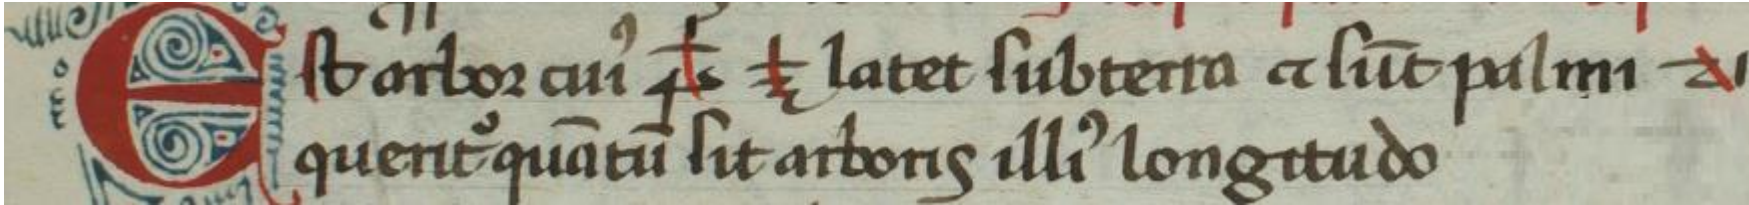 Est arbor cuiꝰ 1/4 1/3 latet sub terra et sūt palmi 21
querit᷑ quātū sit arboris illiꝰ longitudo